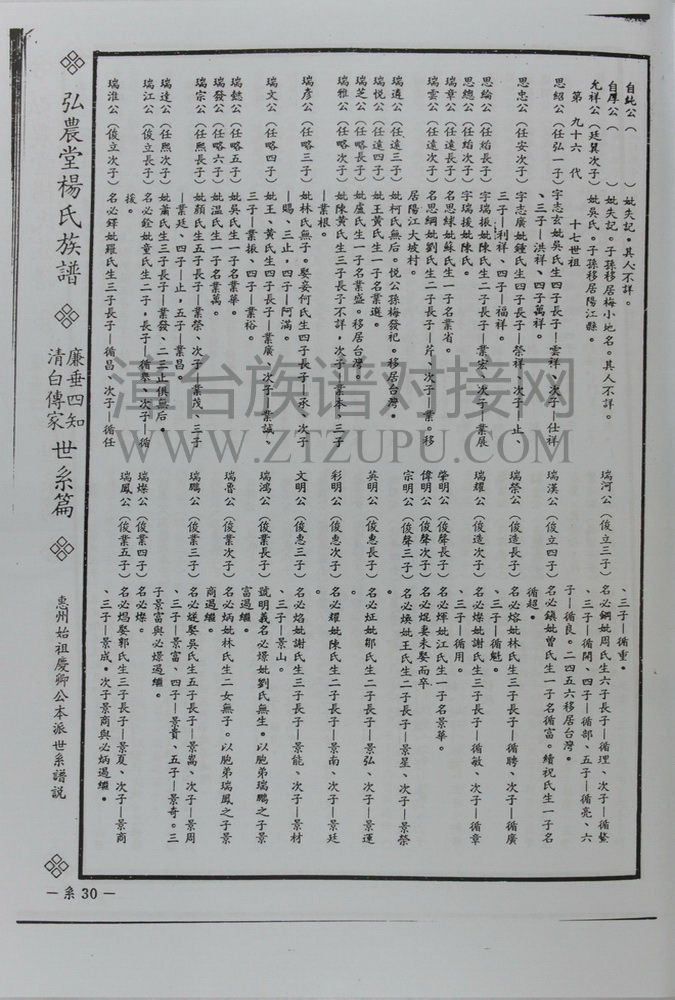 自純公（　　）妣失記。其人不詳。
自厚公（　　）妣失記。子孫移居梅小地名。其人不詳。
允祥公（廷巽次子）妣吳氏。子孫移居陽江縣。
第九十六代　十七世祖
思紹公（任弘一子）字志玄妣吳氏生四子長子—雲祥、次子—仕祥
、三子—洪祥、四子萬祥。
思忠公（任安次子）字志廣妣鍾氏生四子長子—榮祥、次子—止、
三子—利祥、四子—福祥。
思綸公（任紿長子）字瑞振妣陳氏生二子長子—業宏、次子—業展
思總公（任紿次子）字瑞援妣陳氏。
瑞章公（任遠長子）名思綠妣蘇氏生一子名業省。
瑞雲公（任遠次子）名思綱妣劉氏生二子長子—片、次子—業。移
居陽江大坡村。
瑞遴公（任遠三子）妣柯氏無后。悦公孫梅發祀。移居台灣。
瑞悦公（任遠四子）妣王黃氏生一子名業選。
瑞芝公（任略長子）妣盧氏生一子名業盛。移居台灣。
瑞雅公（任略次子）妣陳黃氏生三子長子不詳，次子—業木、三子
—業根。
瑞彦公（任略三子）妣林氏無子。娶妾何氏生四子長子—承、次子
—賜、三止，四子—阿滿。
瑞文公（任略四子）妣王、黃氏生四子長子—業廣、次子—業誠、
三子—業振、四子—業裕。
瑞懿公（任略五子）妣吳氏生一子名業華。
瑞發公（任略六子）妣溫氏生一子名業萬。
瑞宗公（任熙長子）妣顏氏生五子長子—業榮、次子—業茂、三子
—業廷、四子—止，五子—業昌。
瑞達公（任熙次子）妣蕭氏生三子長子—業發、二三止俱無后。
瑞江公（俊立長子）名必銓妣童氏生二子，長子—循舉、次子—循
援。
瑞淮公（俊立次子）名必鐸妣羅氏生三子長子—循昌、次子—循任
、三子—循重。
瑞河公（俊立三子）名必鋼妣周氏生六子長子—循理、次子—循紫
、三子—循開、四子—循部、五子—循亮、六
子—循良。二四五六移居台灣。
瑞漢公（俊立四子）名必鎮妣曾氏生一子名循富。續祝氏生一子名
循超。
瑞榮公（俊造長子）名必熔妣林氏生三子長子—循聘、次子—循廣
、三子—循魁。
瑞耀公（俊造次子）名必燦妣謝氏生三子長子—循敏、次子—循章
、三子—循用。
榮明公（俊聲長子）名必燁妣江氏生一子名景華。
偉明公（俊聲次子）名必焜妻未娶而卒
宗明公（俊聲三子）名必煥妣王氏生二子長子—景星、次子—景榮
。
英明公（俊惠長子）名必炡妣鄒氏生二子長子—景弘、次子—景運
。
彩明公（俊惠次子）名必耀妣陳氏生二子長子—景南、次子—景廷
。
文明公（俊惠三子）名必焰妣謝氏生三子長子—景能、次子—景材
、三子—景山。
瑞鴻公（俊業長子）號明義名必爆妣劉氏無生。以胞弟瑞鵬之子景
富過繼。
瑞魯公（俊業次子）名必炳妣林氏生二女無子。以胞弟瑞鳳之子景
商過繼。
瑞鵬公（俊業三子）名必煖娶吳氏生五子長子—景嵩、次子—景周
、三子—景富、四子—景貴、五子—景奇。三
子景富與必爆過繼。
瑞燦公（俊業四子）名必燦。
瑞鳳公（俊業五子）名必熀娶郭氏生三子長子—景夏、次子—景商
、三子—景成。次子景商與必炳過繼。
弘農堂楊氏族譜
廉垂四知
清白傳家
世系篇
惠州始祖慶卿公本派世系譜説
—系30—
漳台族谱对接网
WWW.ZTZUPU.COM